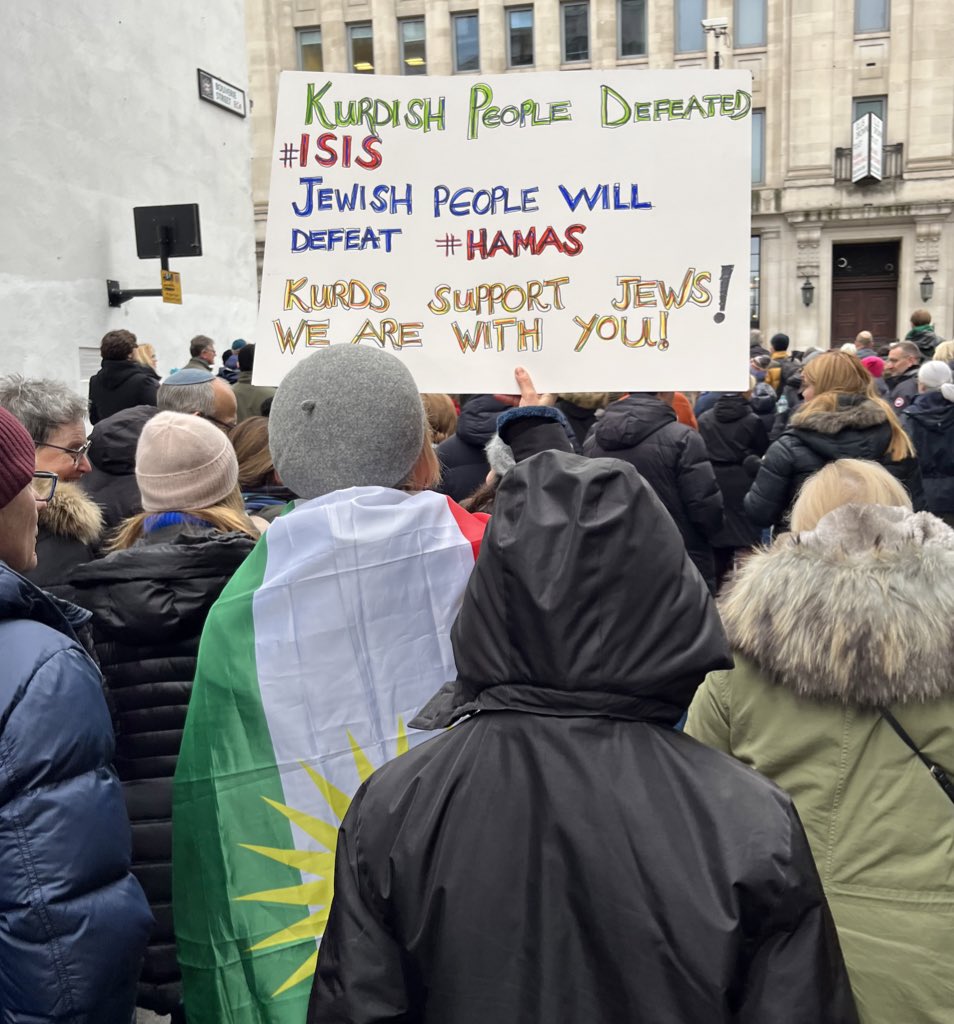 BOUVERIE
STREET EC4
KURDISH PEOPLE DEFEATED
#ISIS
JEWISH PEOPLE WILL
DEFEAT #HAMAS
KURDS SUPPORT JEWS!
WE ARE WITH YOU!